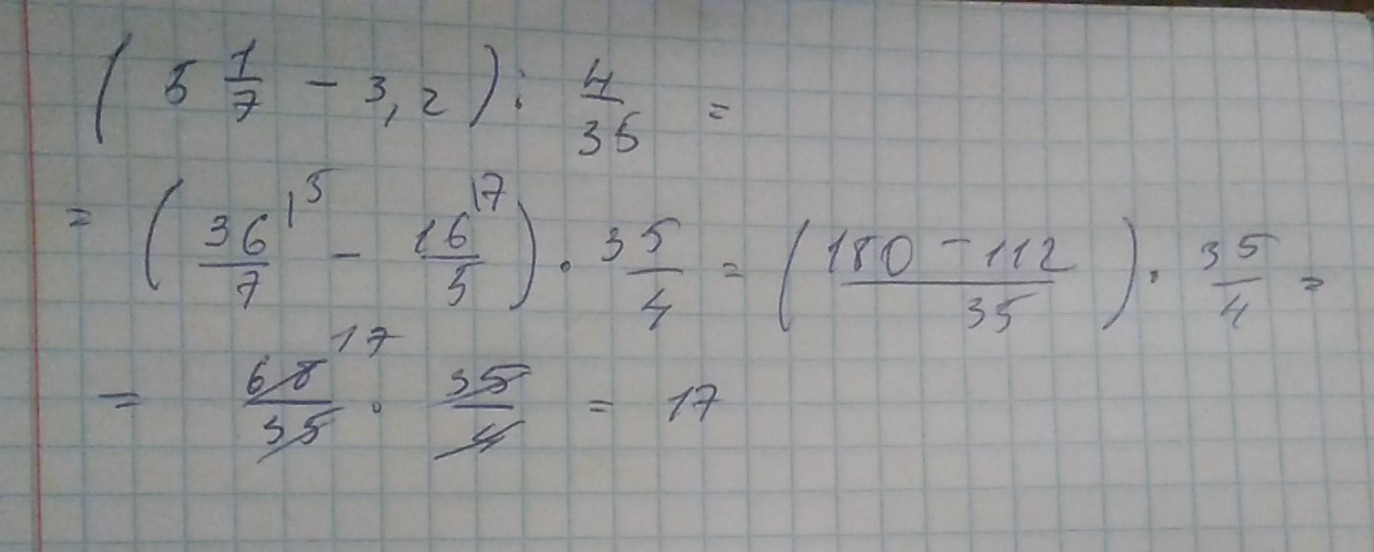 (5 1/7 - 3,2) : 4/35 =
= (36/7 |5 - 16/5 |7) · 35/4 = (180 - 112 / 35) · 35/4 =
= 68/35 17 · 35/4 = 17